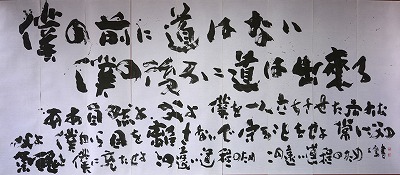 僕の前に道はない
僕の後ろに道は出来る
ああ自然よ 父よ 僕を一人立ちさせた広大な
父よ 僕から目を離さないで守ることをせよ 常に父の
気魄を僕に充たせよ この遠い道程のため この遠い道程のため